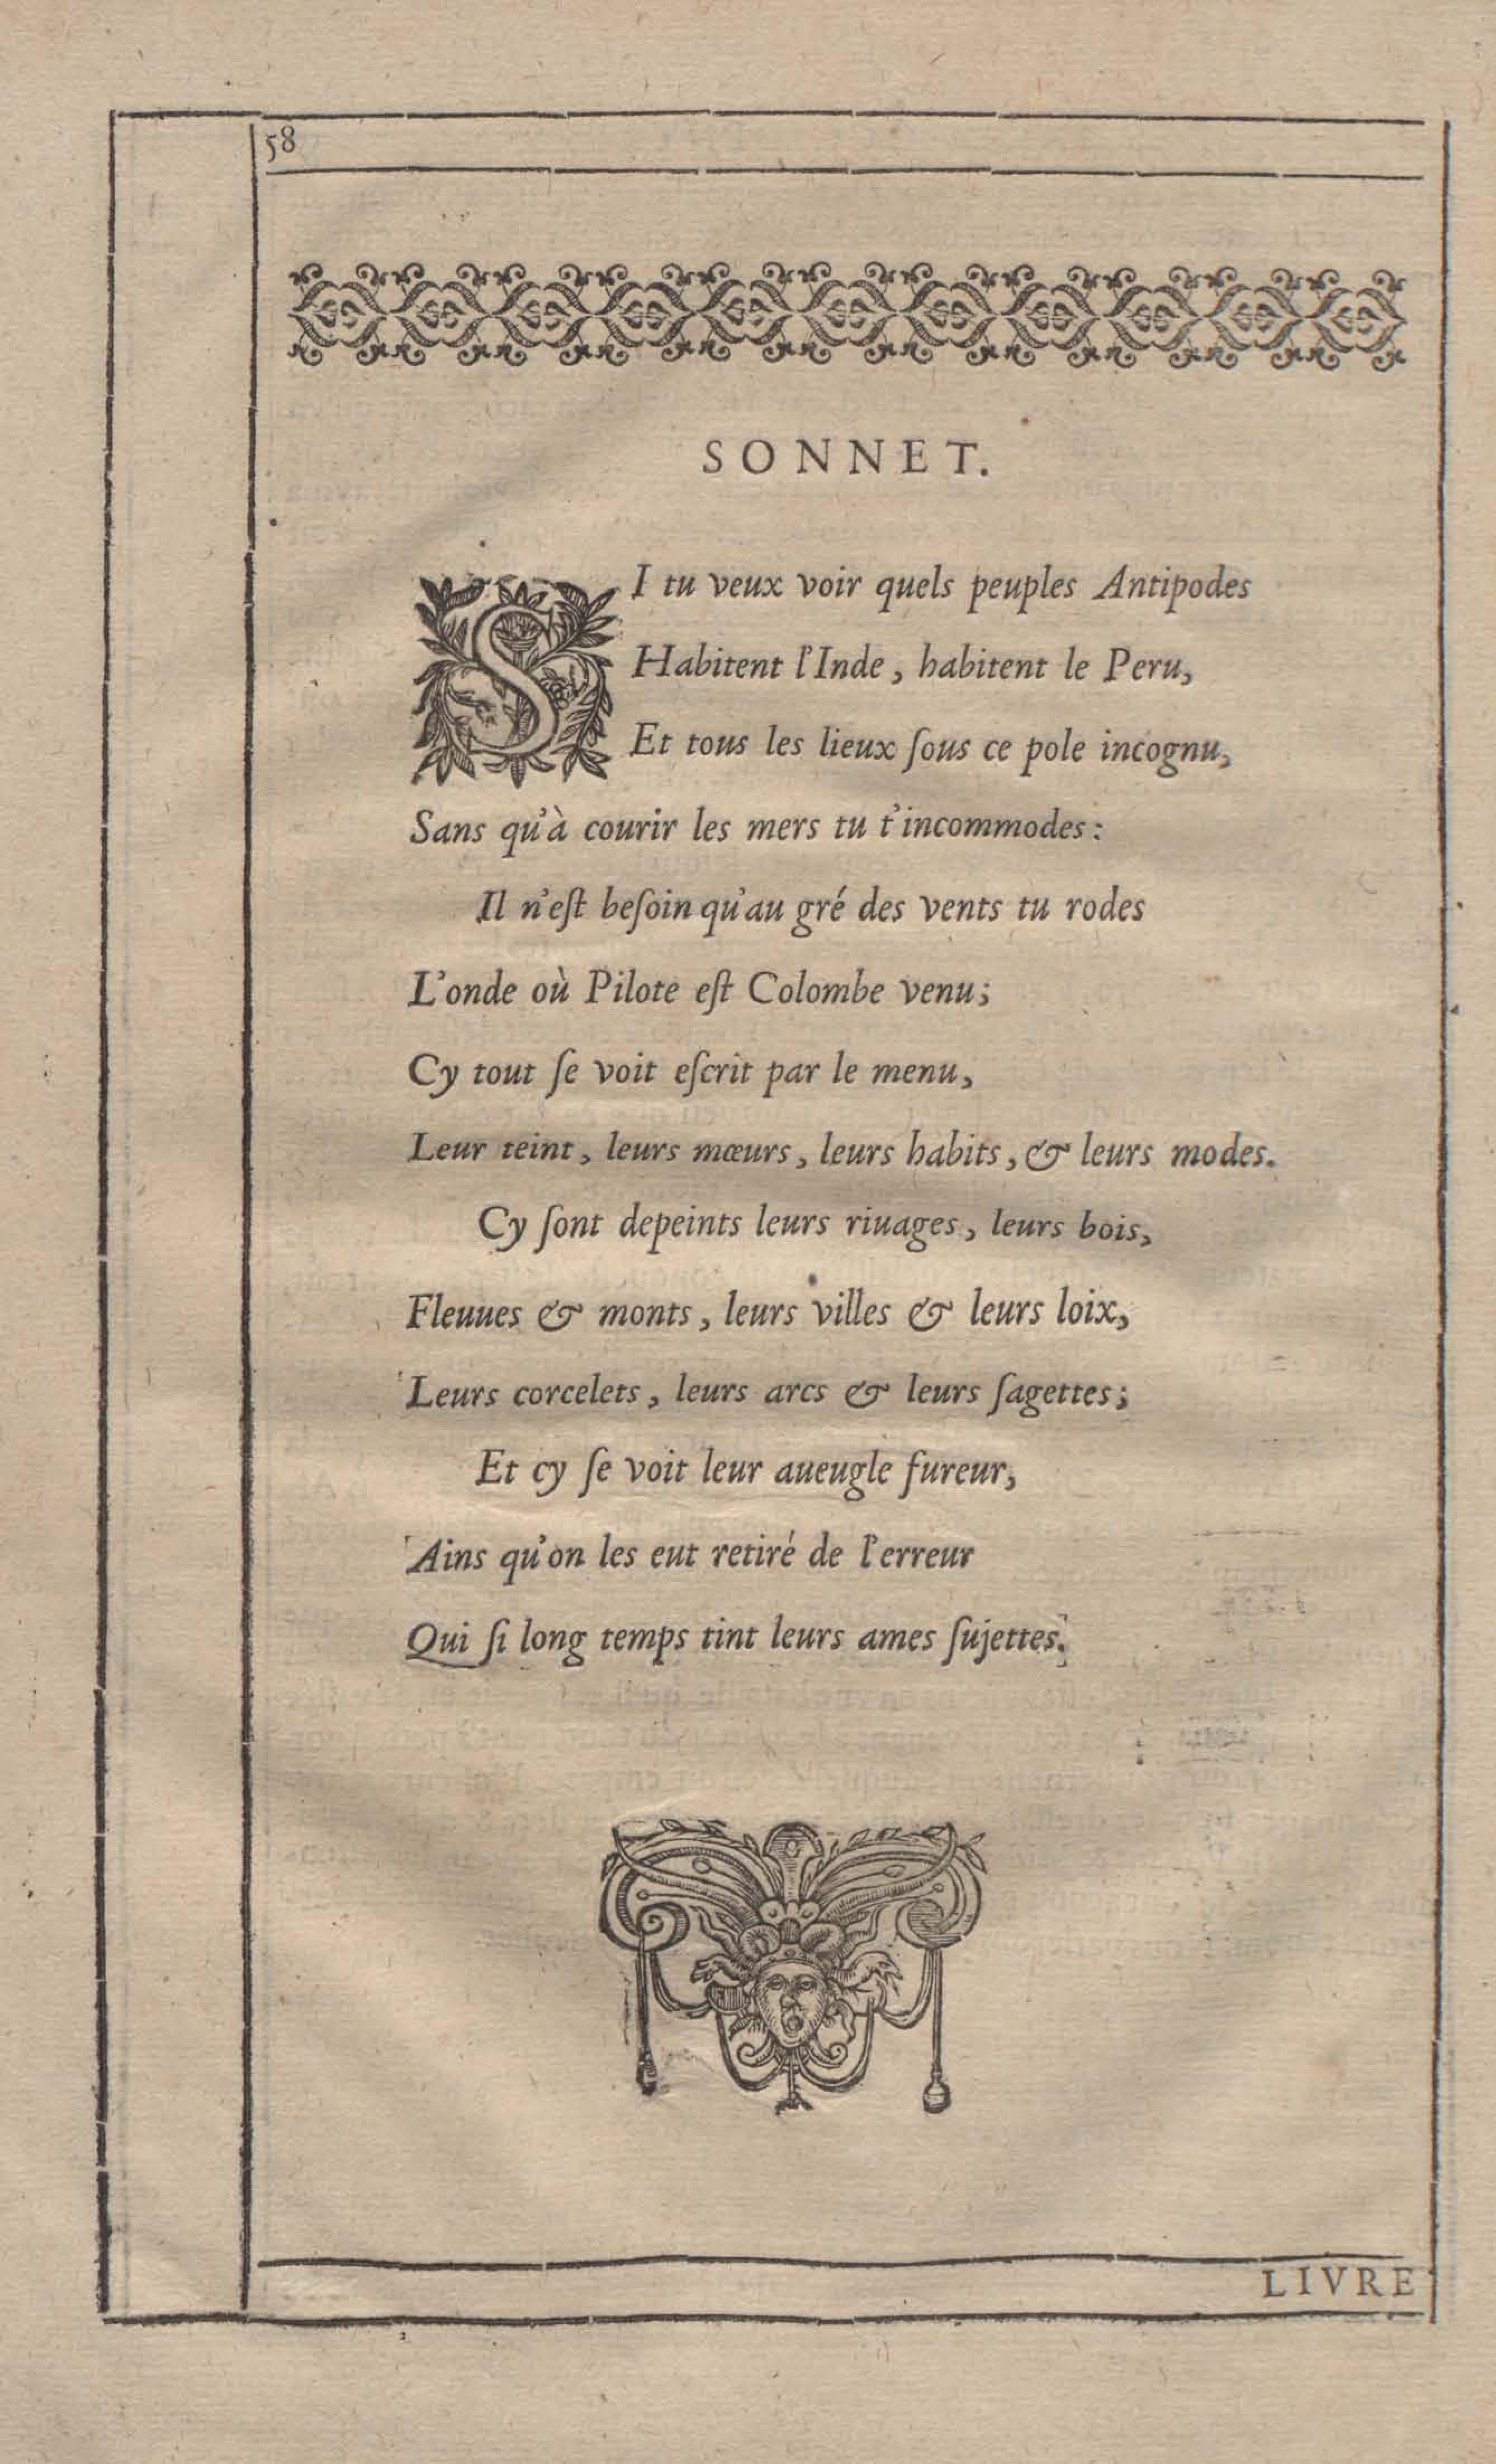 58
SONNET.
SI tu veux voir quels peuples Antipodes
Habitent l'Inde, habitent le Peru,
Et tous les lieux ſous ce pole incognu,
Sans qu'à courir les mers tu t'incommodes:
Il n'eſt beſoin qu'au gré des vents tu rodes
L'onde où Pilote eſt Colombe venu;
Cy tout ſe voit eſcrit par le menu,
Leur teint, leurs mœurs, leurs habits, & leurs modes.
Cy ſont depeints leurs riuages, leurs bois,
Fleuues & monts, leurs villes & leurs loix,
Leurs corcelets, leurs arcs & leurs ſagettes;
Et cy ſe voit leur aueugle fureur,
Ains qu'on les eut retiré de l'erreur
Qui ſi long temps tint leurs ames ſujettes.
LIVRE